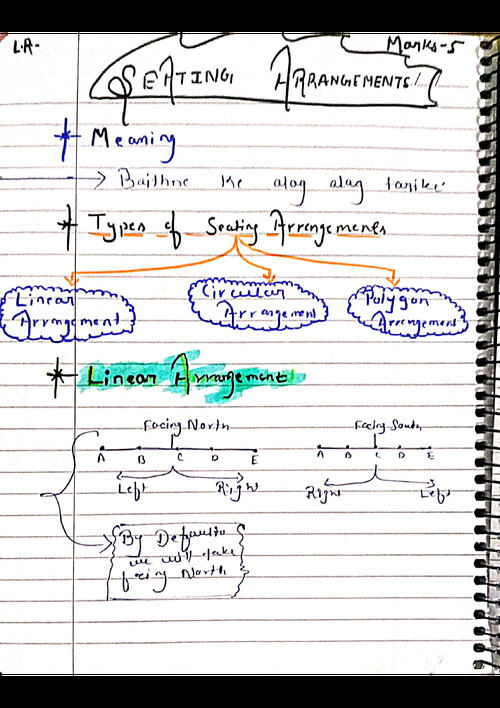 L.R- Marks-5
SEATING ARRANGEMENTS
Meaning
Baithne ke alag alag tarike
Types of Seating Arrangements
Linear Circular Polygon
Arrangement Arrangement Arrangement
Linear Arrangement
Facing North Facing South
A B C D E A B C D E
Left Right Right Left
By Default
we will take
facing North